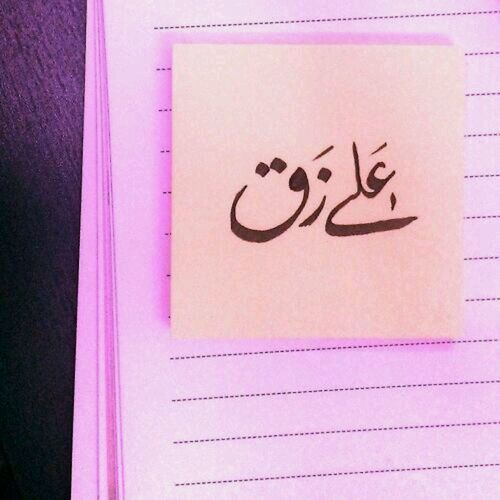 عَلے زَق